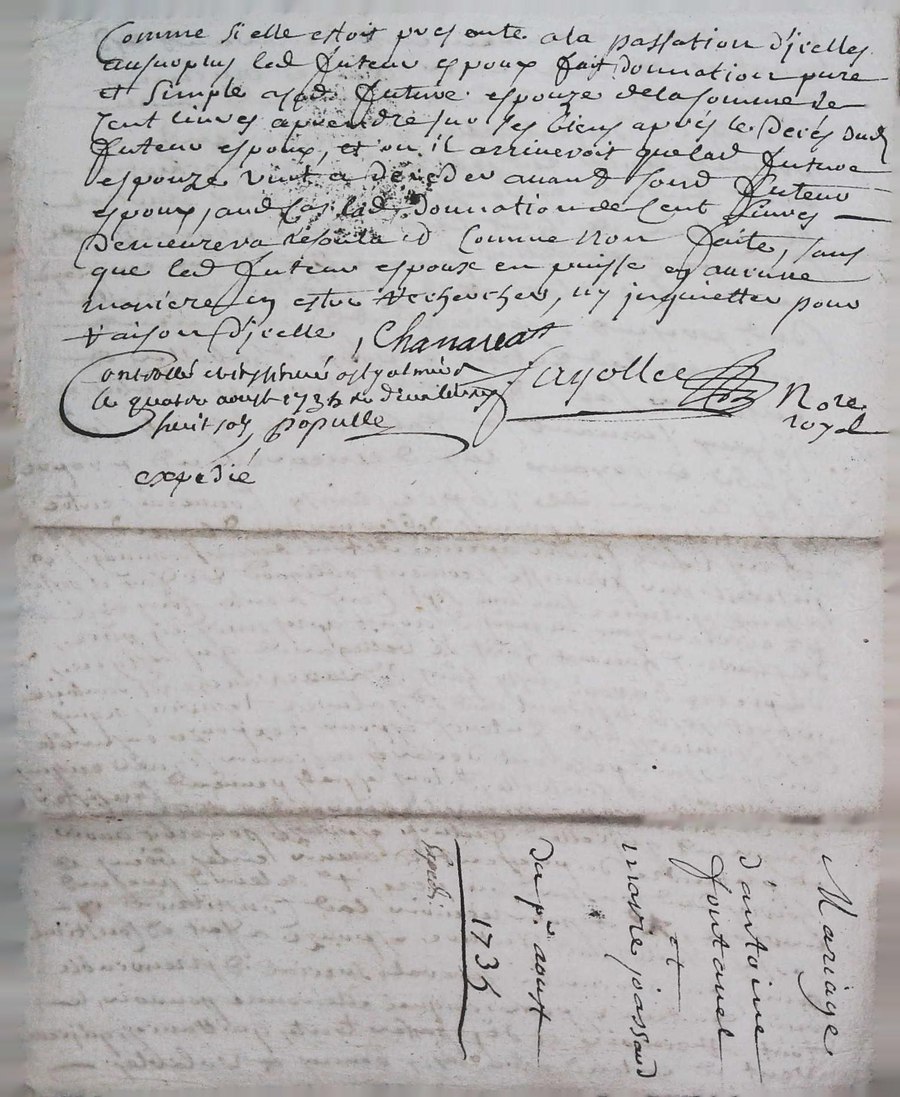 Comme si elle estoit presente a la passation d'icelles
au surplus led futeur espoux fait donnation pure
et simple a lad. future espouze de la somme de
Cent livres a prendre sur ses biens aprés le decés dud
futeur espoux, et ou il arriveroit que lad future
espouze vint a deceder avand sond futeur
espoux, aud Cas lad. donnation de Cent livres
demeurera resoulu et Comme non faite, sans
que led futeur espoux en puisse en aucune
maniere en estre recherchee, ny inquietter pour
raison d'icelle, Chanareat
Controllé et insinué a
le quatre aoust 173
huit sols, Populle
Fayolle Nore
royal
expedié
Mariage
d'antoine
fontanel
et
marie joassaud
du pr. aoust
173
Expedié